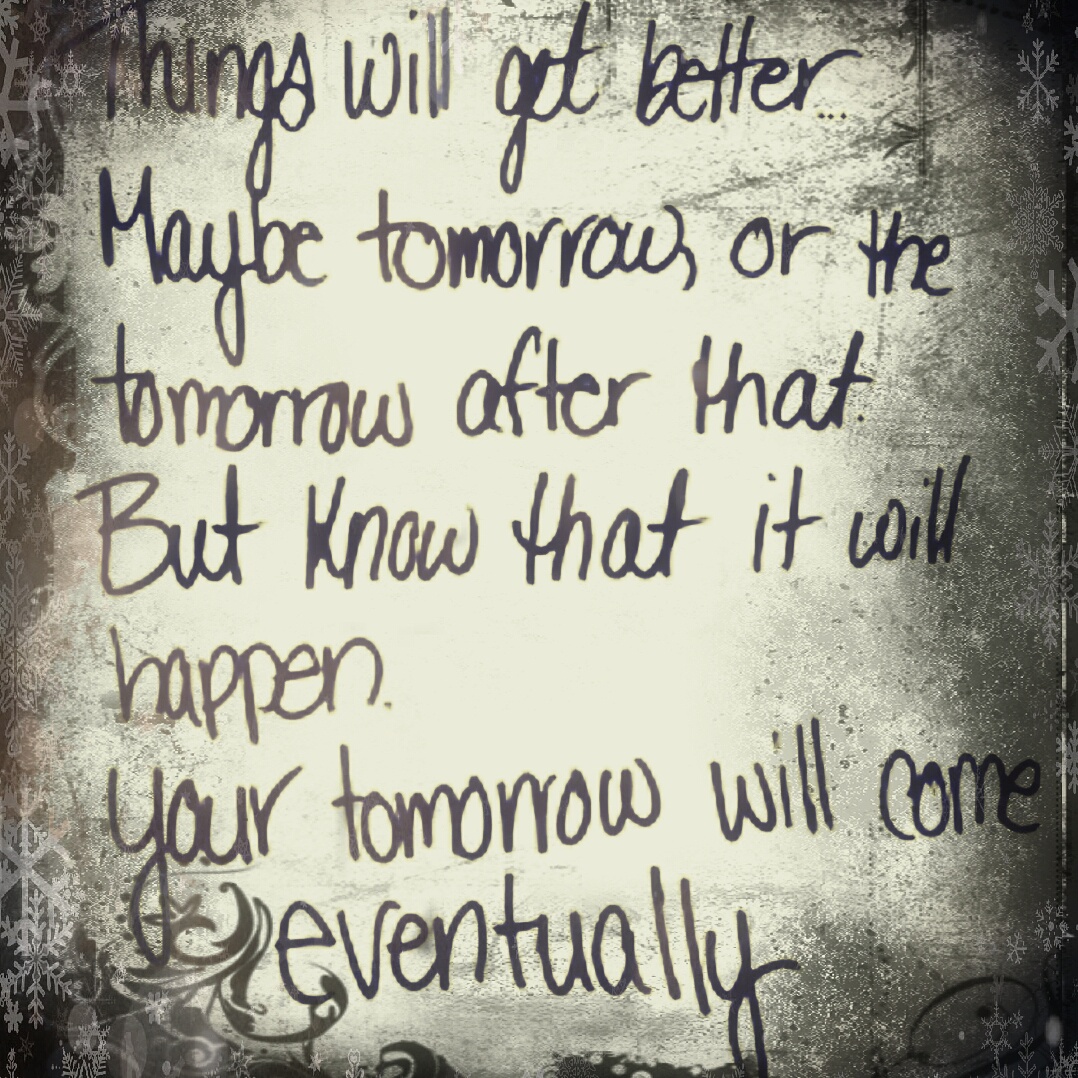 Things will get better...
Maybe tomorrow, or the
tomorrow after that.
But know that it will
happen.
Your tomorrow will come
eventually